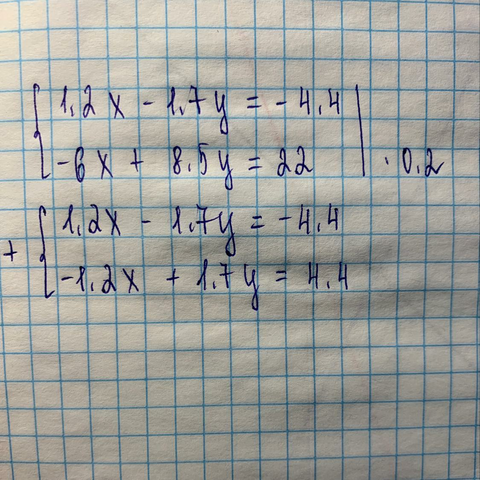 1.2x - 1.7y = -4.4
-6x + 8.5y = 22 | · 0.2
1.2x - 1.7y = -4.4
+
-1.2x + 1.7y = 4.4